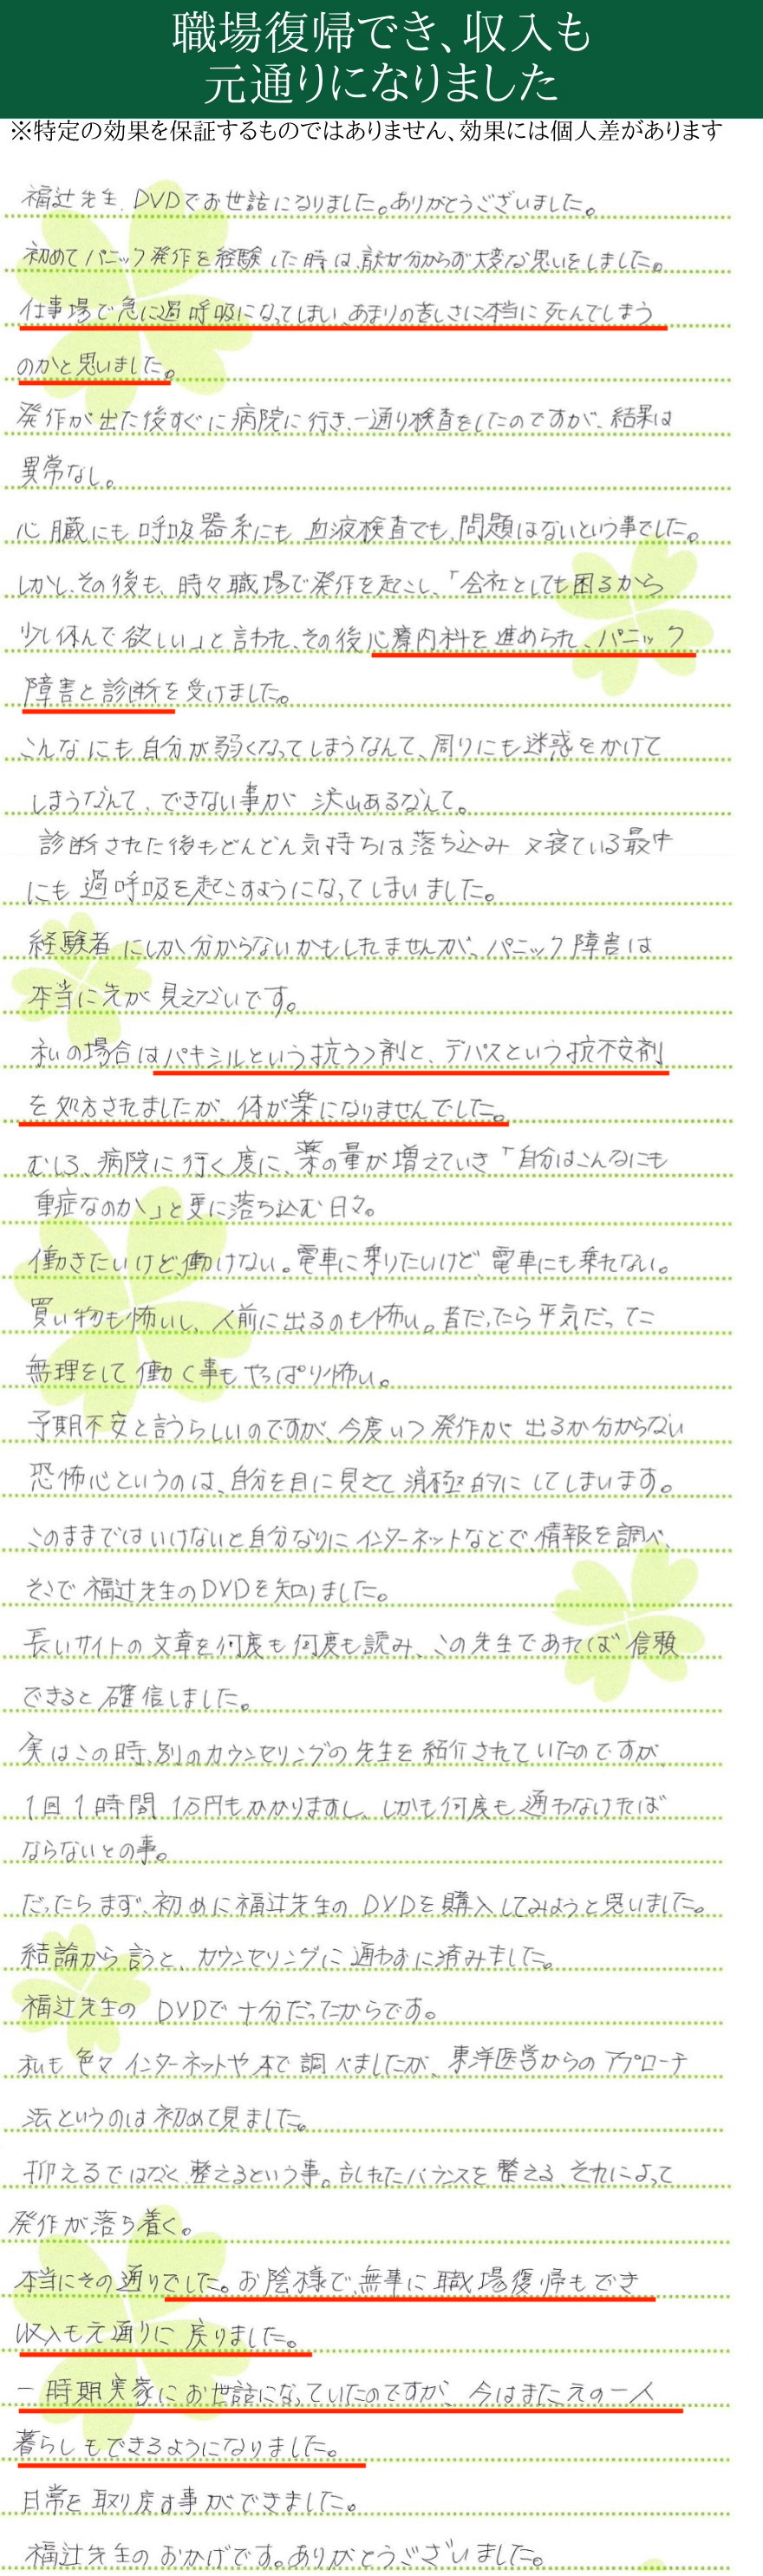 職場復帰でき、収入も
元通りになりました
※特定の効果を保証するものではありません、効果には個人差があります
福辻先生、DVDでお世話になりました。ありがとうございました。
初めてパニック発作を経験した時は、訳が分からず大変な思いをしました。
仕事場で急に過呼吸になってしまい、あまりの苦しさに本当に死んでしまう
のかと思いました。
発作が出た後すぐに病院に行き、一通り検査をしたのですが、結果は
異常なし。
心臓にも呼吸器系にも血液検査でも、問題はないという事でした。
しかし、その後も、時々職場で発作を起こし、「会社としても困るから
少し休んで欲しい」と言われ、その後心療内科を進められ、パニック
障害と診断を受けました。
こんなにも自分が弱くなってしまうなんて、周りにも迷惑をかけて
しまうなんて、できない事が沢山あるなんて。
診断された後もどんどん気持ちは落ち込み又寝ている最中
にも過呼吸を起こすようになってしまいました。
経験者にしか分からないかもしれませんが、パニック障害は
本当に先が見えないです。
私の場合はパキシルという抗うつ剤と、デパスという抗不安剤
を処方されましたが、体が楽になりませんでした。
むしろ、病院に行く度に、薬の量が増えていき「自分はこんなにも
重症なのか」と更に落ち込む日々。
働きたいけど働けない。電車に乗りたいけど、電車にも乗れない。
買い物も怖いし、人前に出るのも怖い。昔だったら平気だってこ
無理をして働く事もやっぱり怖い。
予期不安と言うらしいのですが、今度いつ発作が出るか分からない
恐怖心というのは、自分を目に見えて消極的にしてしまいます。
このままではいけないと自分なりにインターネットなどで、情報を調べ、
そこで福辻先生のDVDを知りました。
長いサイトの文章を何度も何度も読み、この先生であれば信頼
できると確信しました。
実はこの時、別のカウンセリングの先生を紹介されていたのですが、
1回1時間1万円もかかりますし、しかも何度も通わなければ
ならないとの事。
だったらまず、初めに福辻先生のDVDを購入してみようと思いました。
結論から言うと、カウンセリングに通わずに済みました。
福辻先生のDVDで十分だったからです。
私も色々インターネットや本で調べましたが、東洋医学からのアプローチ
法というのは初めて見ました。
抑えるではなく、整えるという事。乱れたバランスを整える、それによって
発作が落ち着く。
本当にその通りでした。お陰様で、無事に職場復帰もでき
収入も元通りに戻りました。
一時期実家にお世話になっていたのですが、今はまた元の一人
暮らしもできるようになりました。
日常を取り戻す事ができました。
福辻先生のおかげです。ありがとうございました。